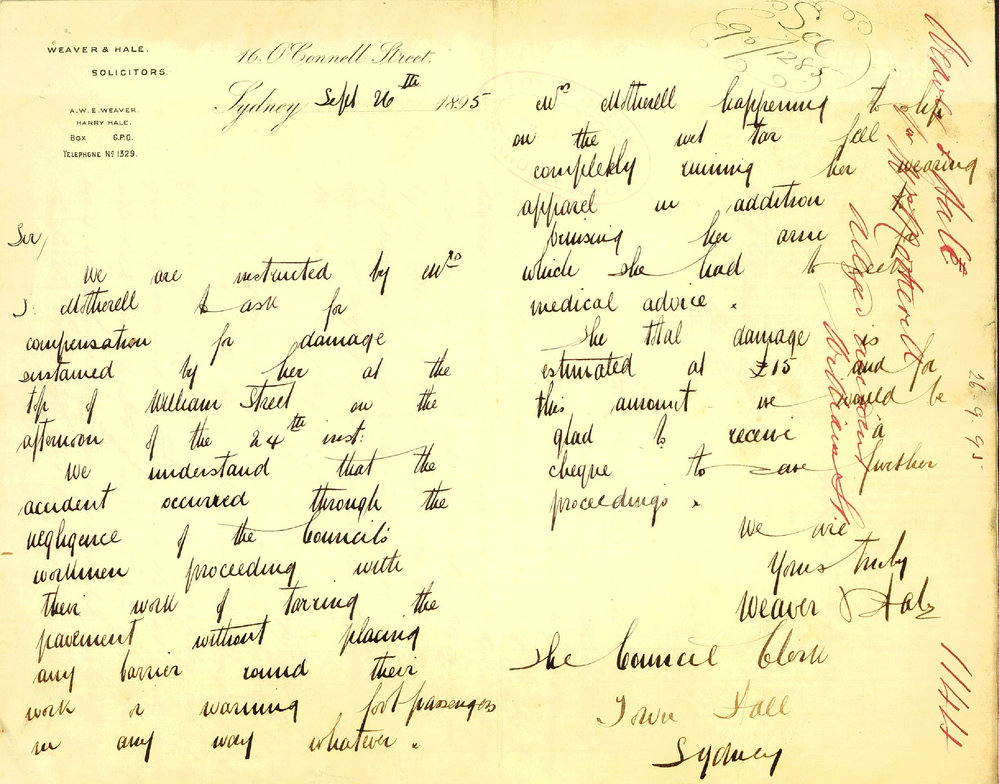 WEAVER & HALE.
SOLICITORS.
A.W.E. WEAVER.
HARRY HALE.
BOX G.P.O.
TELEPHONE Nº 1329.
16. O'Connell Street.
Sydney Sept 26th 1895
Sir,
We are instructed by Mrs
J. Motherell to ask for
compensation for damage
sustained by her at the
top of William Street on the
afternoon of the 24th inst:
We understand that the
accident occurred through the
negligence of the Council's
workmen proceeding with
their work of tarring the
pavement without placing
any barrier round their
work or warning foot passengers
in any way whatever.
Mrs Motherell happening to slip
on the wet tar fell
completely ruining her wearing
apparel in addition to
bruising her arm
which she had to seek
medical advice.
The total damage is
estimated at £15 and for
this amount we would be
glad to receive a
cheque to save further
proceedings.
We are
Yours truly
Weaver & Hale
The Council Clerk
Town Hall
Sydney
Weaver & Hale
for Mrs Motherell
Alleged accident
William St
26.9.95